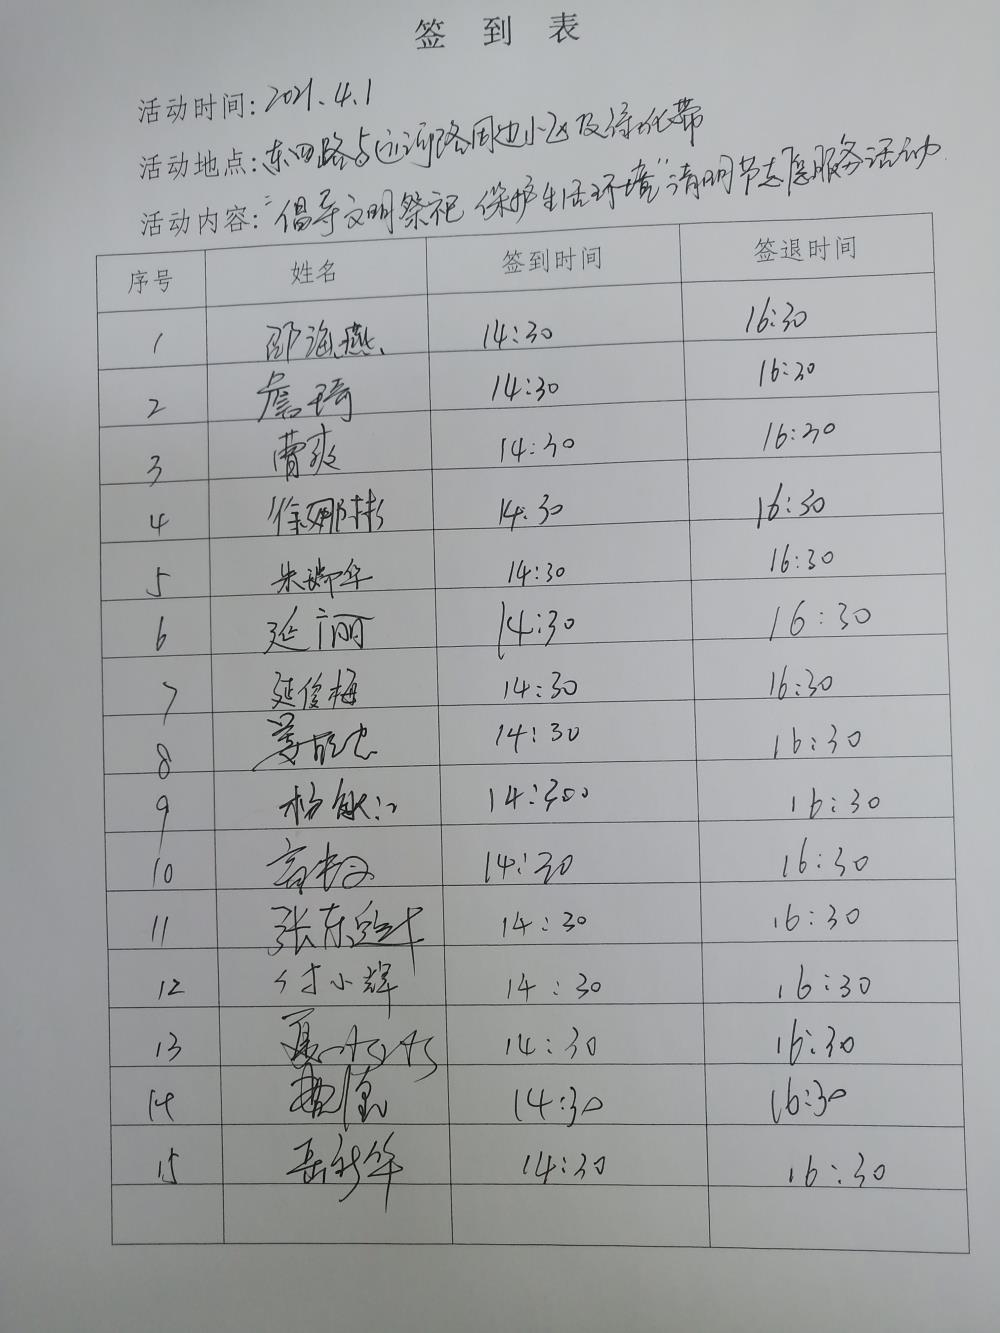 签到表
活动时间: 2021.4.1
活动地点: 东四路与运河路周边小区及绿化带
活动内容: "倡导文明祭祀 保护生活环境"清明节志愿服务活动
序号 姓名 签到时间 签退时间
1 邵海燕 14:30 16:30
2 詹琦 14:30 16:30
3 曹爽 14:30 16:30
4 徐娜彬 14:30 16:30
5 朱瑞华 14:30 16:30
6 延广丽 14:30 16:30
7 延俊梅 14:30 16:30
8 14:30 16:30
9 杨敏 14:300 16:30
10 14:30 16:30
11 张东 14:30 16:30
12 付小辉 14:30 16:30
13 夏 14:30 16:30
14 14:30 16:30
15 岳新华 14:30 16:30